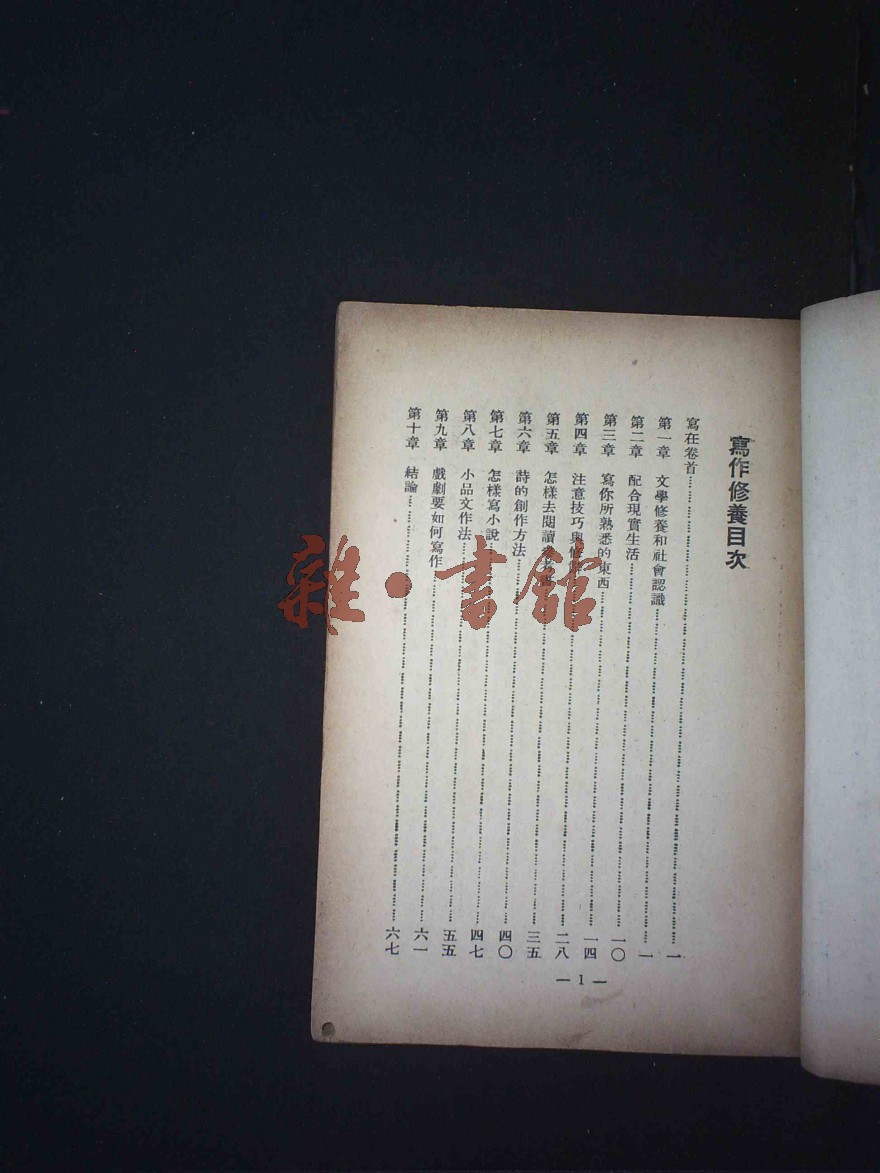 寫作修養目次
寫在卷首……一
第一章 文學修養和社會認識……一
第二章 配合現實生活……一〇
第三章 寫你所熟悉的東西……一四
第四章 注意技巧與修……二八
第五章 怎樣去閱讀……三五
第六章 詩的創作方法……四〇
第七章 怎樣寫小說……四七
第八章 小品文作法……五五
第九章 戲劇要如何寫作……六一
第十章 結論……六七
— 1 —
雜·書館